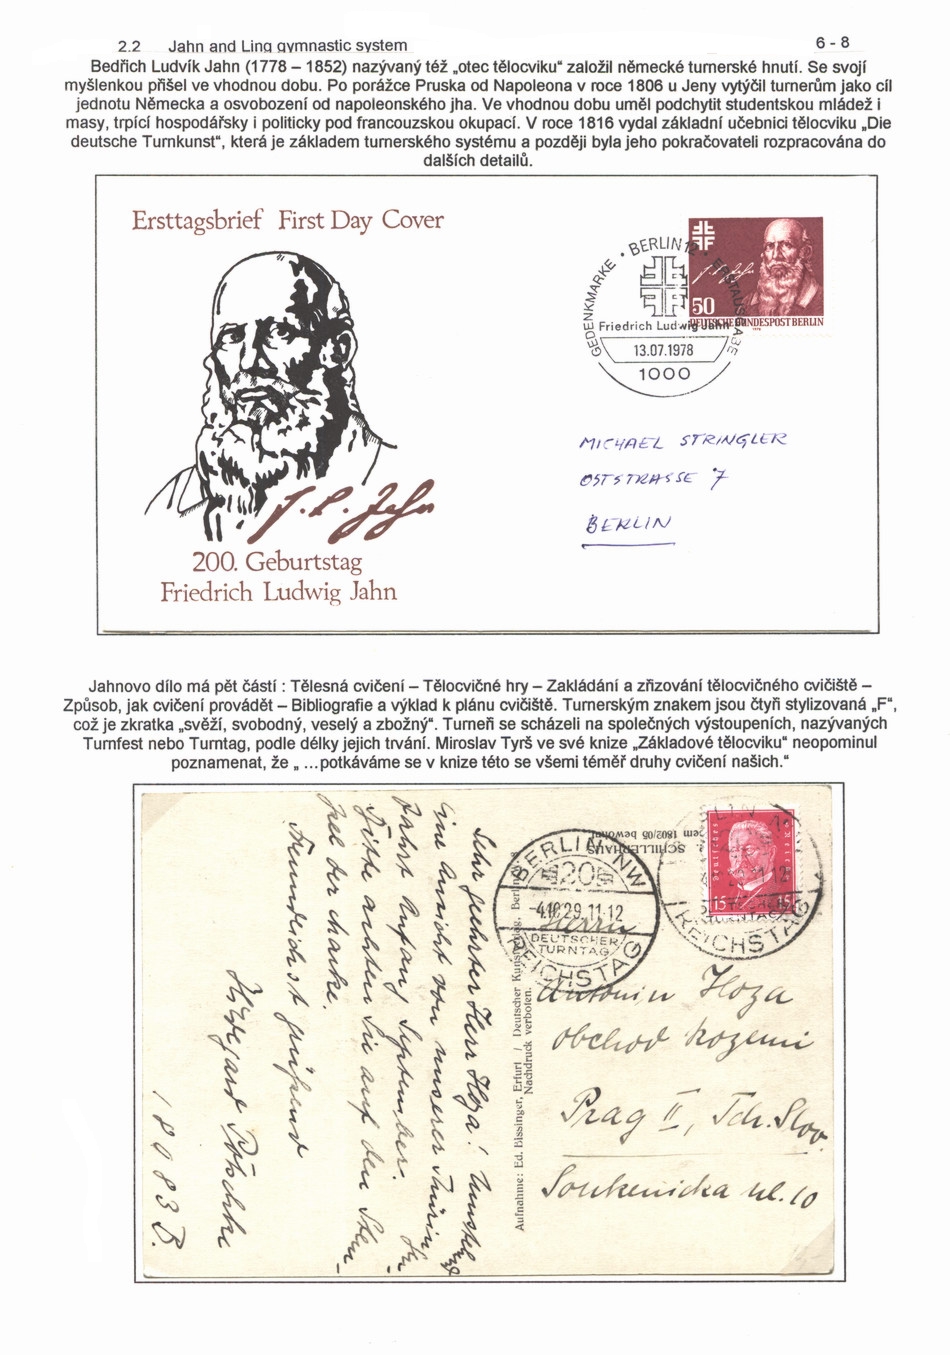 2.2 Jahn and Ling gymnastic system
6 - 8
Bedřich Ludvík Jahn (1778 – 1852) nazývaný též „otec tělocviku“ založil německé turnerské hnutí. Se svojí
myšlenkou přišel ve vhodnou dobu. Po porážce Pruska od Napoleona v roce 1806 u Jeny vytýčil turnerům jako cíl
jednotu Německa a osvobození od napoleonského jha. Ve vhodnou dobu uměl podchytit studentskou mládež i
masy, trpící hospodářsky i politicky pod francouzskou okupací. V roce 1816 vydal základní učebnici tělocviku „Die
deutsche Turnkunst“, která je základem turnerského systému a později byla jeho pokračovateli rozpracována do
dalších detailů.
Ersttagsbrief First Day Cover
GEDENKMARKE • BERLIN 12 • ERSTAUSGABE
Friedrich Ludwig Jahn
13.07.1978
1000
50
DEUTSCHE BUNDESPOST BERLIN
MICHAEL STRINGLER
OSTSTRASSE 7
BERLIN
J. L. Jahn
200. Geburtstag
Friedrich Ludwig Jahn
Jahnovo dílo má pět částí : Tělesná cvičení – Tělocvičné hry – Zakládání a zřizování tělocvičného cvičiště –
Způsob, jak cvičení provádět – Bibliografie a výklad k plánu cvičiště. Turnerským znakem jsou čtyři stylizovaná „F“,
což je zkratka „svěží, svobodný, veselý a zbožný“. Turneři se scházeli na společných výstoupeních, nazývaných
Turnfest nebo Turntag, podle délky jejich trvání. Miroslav Tyrš ve své knize „Základové tělocviku“ neopominul
poznamenat, že „ ...potkáváme se v knize této se všemi téměř druhy cvičení našich.“
Sehr geehrter Herr Hoza!
eine Ansicht von unserer
Anfang September.
Bitte achten Sie auf den Stem-
pel der Marke.
Freundlichst grüssend
Hildegard
18083 B.
SCHILLERHAUS
1802/05 bewohnt
Aufnahme: Ed. Bissinger, Erfurt / Deutscher Kunstverlag, Berlin
Nachdruck verboten.
BERLIN NW
20
-4.10.29.11-12
DEUTSCHER
TURNTAG
REICHSTAG
Deutsches Reich
15 15
REICHSTAG
Herrn
Antonin Hoza
obchod kozemi
Prag II, Tch. Slov.
Soukenicka ul. 10